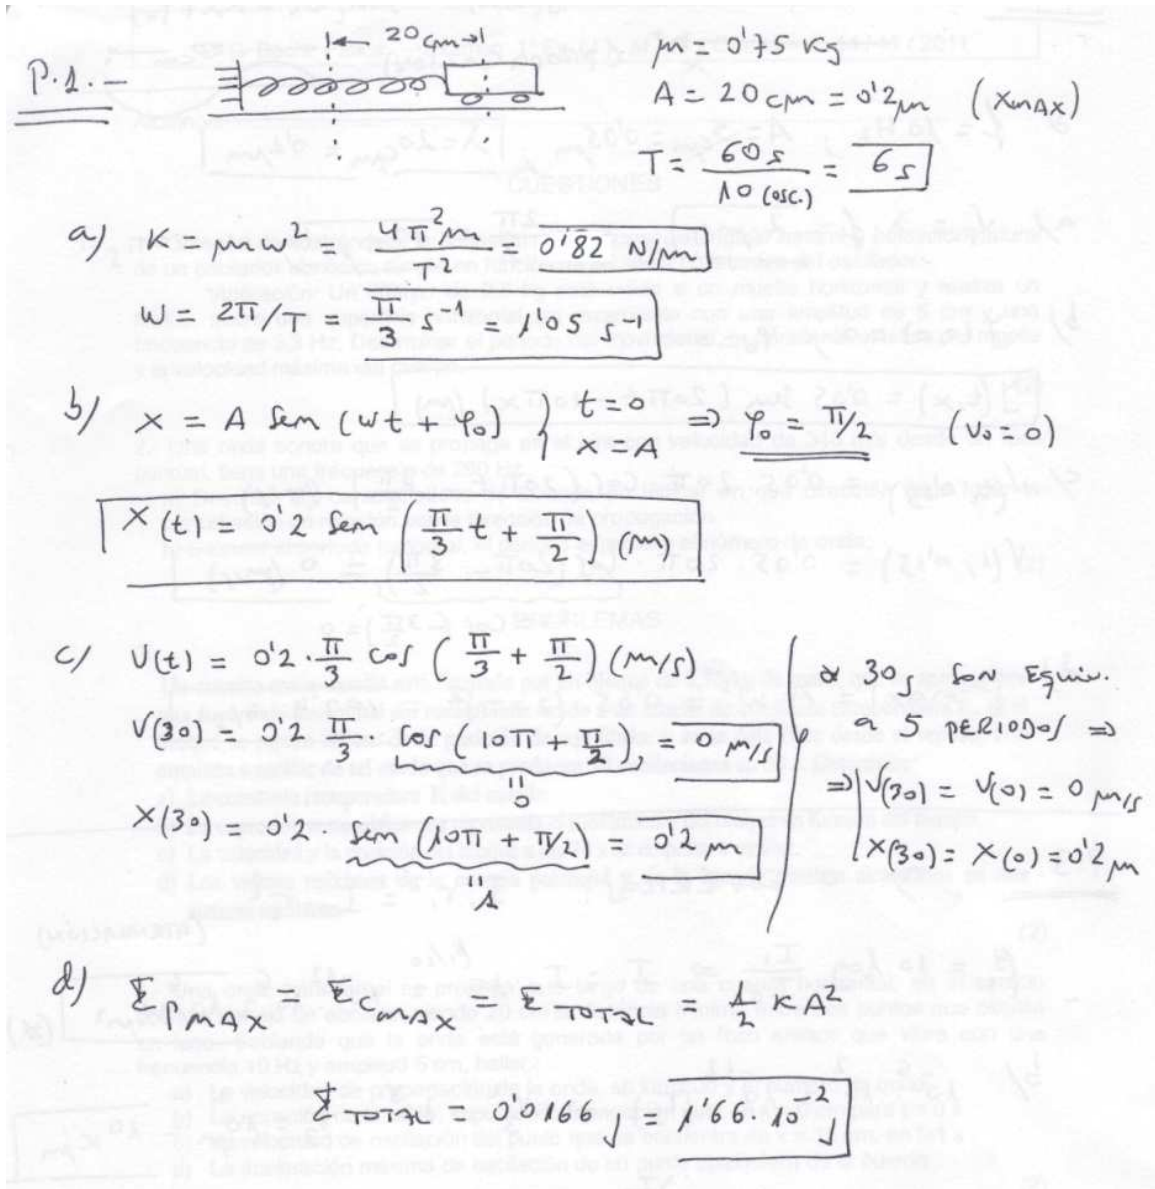 P.1.-
20 cm
m = 0'75 Kg
A = 20 cm = 0'2 m (XMAX)
T = 60 s / 10 (osc.) = 6 s
a) K = mω² = 4π²m / T² = 0'82 N/m
ω = 2π/T = π/3 s⁻¹ = 1'05 s⁻¹
b) X = A Sen (ωt + φ₀) { t = 0 x = A ⇒ φ₀ = π/2 (v₀ = 0)
X(t) = 0'2 Sen (π/3 t + π/2) (m)
c) V(t) = 0'2 · π/3 cos (π/3 + π/2) (m/s)
V(30) = 0'2 π/3 cos (10π + π/2) = 0 m/s
0
X(30) = 0'2 · sen (10π + π/2) = 0'2 m
1
30 s SON EQUIV.
a 5 PERIODOS ⇒
⇒ V(30) = V(0) = 0 m/s
X(30) = X(0) = 0'2 m
d) EPMAX = ECMAX = ETOTAL = 1/2 KA²
ETOTAL = 0'0166 J = 1'66·10⁻² J